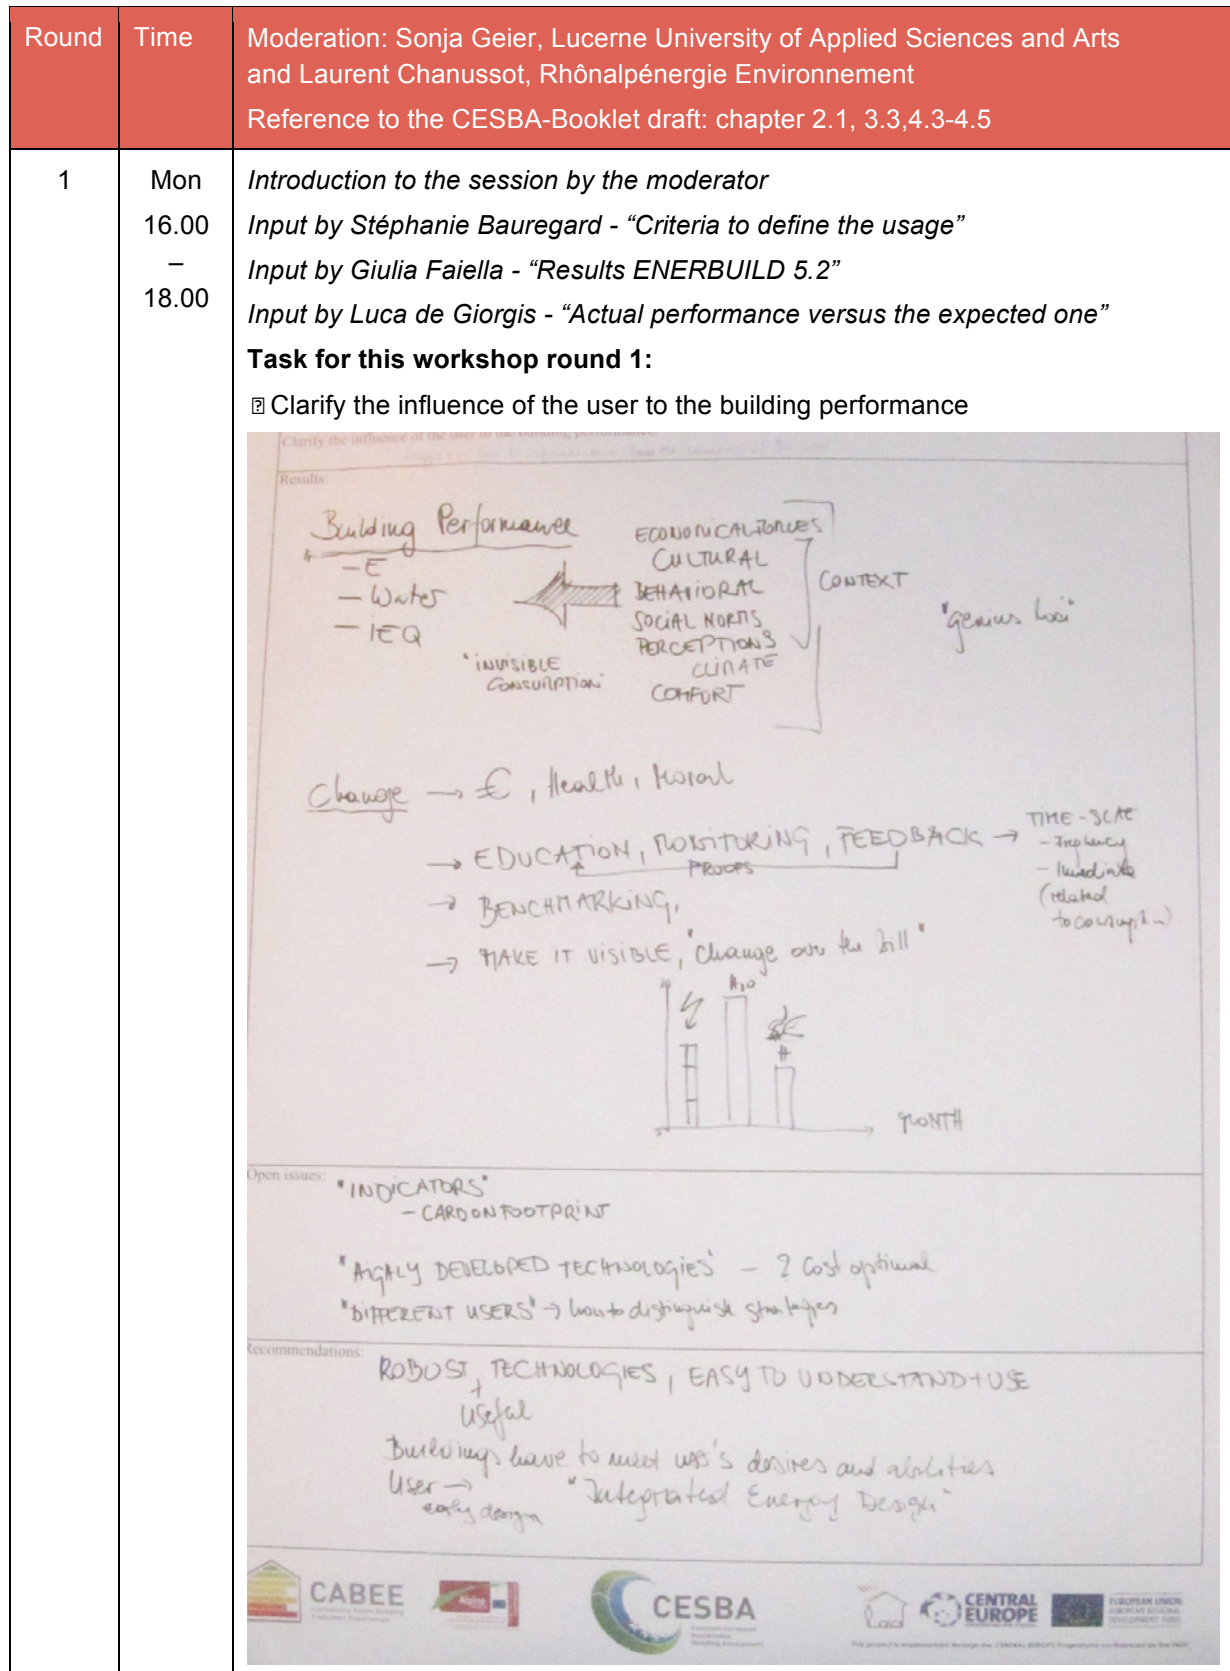 Round
Time
Moderation: Sonja Geier, Lucerne University of Applied Sciences and Arts
and Laurent Chanussot, Rhônalpénergie Environnement
Reference to the CESBA-Booklet draft: chapter 2.1, 3.3,4.3-4.5
1
Mon
16.00
–
18.00
Introduction to the session by the moderator
Input by Stéphanie Bauregard - “Criteria to define the usage”
Input by Giulia Faiella - “Results ENERBUILD 5.2”
Input by Luca de Giorgis - “Actual performance versus the expected one”
Task for this workshop round 1:
Clarify the influence of the user to the building performance
Clarify the influence of the user to the building performance
Results:
Building Performance
– E
– Water
– IEQ
"INVISIBLE
CONSUMPTION"
ECONOMICAL FORCES
CULTURAL
BEHAVIORAL
SOCIAL NORMS
PERCEPTIONS
CLIMATE
COMFORT
CONTEXT
"genius loci"
Change → €, Health, Moral
→ EDUCATION, MONITORING, FEEDBACK →
PROOFS
TIME-SCALE
- Frequency
- Immediate
(related
to consumpt..)
→ BENCHMARKING,
→ MAKE IT VISIBLE, "Change over the bill"
H2O
MONTH
Open issues:
"INDICATORS"
– CARDONFOOTPRINT
"HIGHLY DEVELOPED TECHNOLOGIES" – ? Cost optimal
"DIFFERENT USERS" → how to distinguish strategies
Recommendations:
ROBUST, TECHNOLOGIES, EASY TO UNDERSTAND+USE
+
useful
Buildings have to meet user's desires and abilities
User →
early design
"Integrated Energy Design"
CABEE
Alpine
CESBA
CENTRAL
EUROPE
EUROPEAN UNION
EUROPEAN REGIONAL
DEVELOPMENT FUND